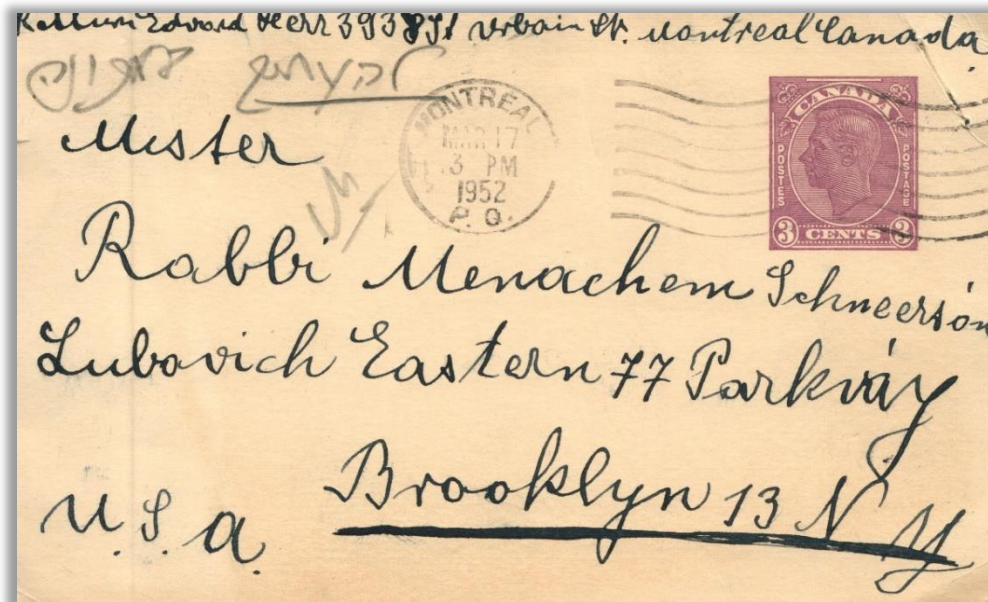 Edward Herr 3938 St Urbain St. Montreal Canada
MONTREAL
MAR 17
3 PM
1952
P. Q.
CANADA
POSTES
POSTAGE
3 CENTS 3
Mister
Rabbi Menachem Schneerson
Lubovich Eastern 77 Parkváy
Brooklyn 13 N Y
U.S.A.